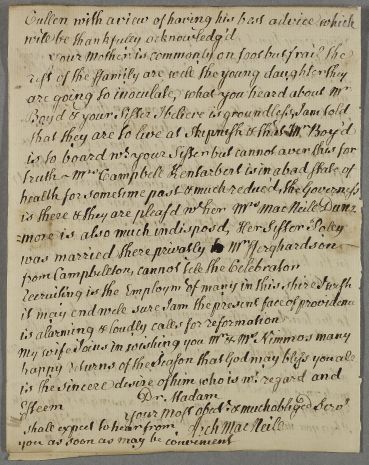 Cullen with a view of having his best advice which
will be thankfully acknowledg'd
Your Mother is commonly on foot but frail the
rest of the ffamily are well the young daughter they
are going to inoculate, what you heard about Mr
Boyd & your Sister I believe is groundless, I am told
that they are to live at Skipnish & that Mr Boyd
is to board wt your Sister but cannot aver this for
truth ~ Mrs Campbell Kentarbert is in a bad state of
health for sometime past & much reduced, the Governess
is there & they are pleas'd wt her Mrs MacNeile Dun
more is also much indisposd, Her Sister Polly
was married there privatly to Mr
from Campbelton, cannot tell the Celebrator
Recruiting is the Employmt of many in this shire I wish
it may end well sure I am the present face of providence
is alarming & loudly calls for reformation
My wife Joins in wishing you Mr & Mrs Nimmos many
happy returns of the Season that God may bless you all
is the sincere desire of him who is wt regard and
Esteem
Dr. Madam
your most obedt & much obliged Servt
shall expect to hear from Arch MacNeile
you as soon as may be convenient